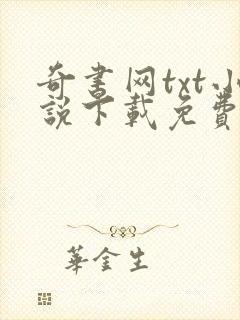 奇書网txt小
說下載免費
華金生